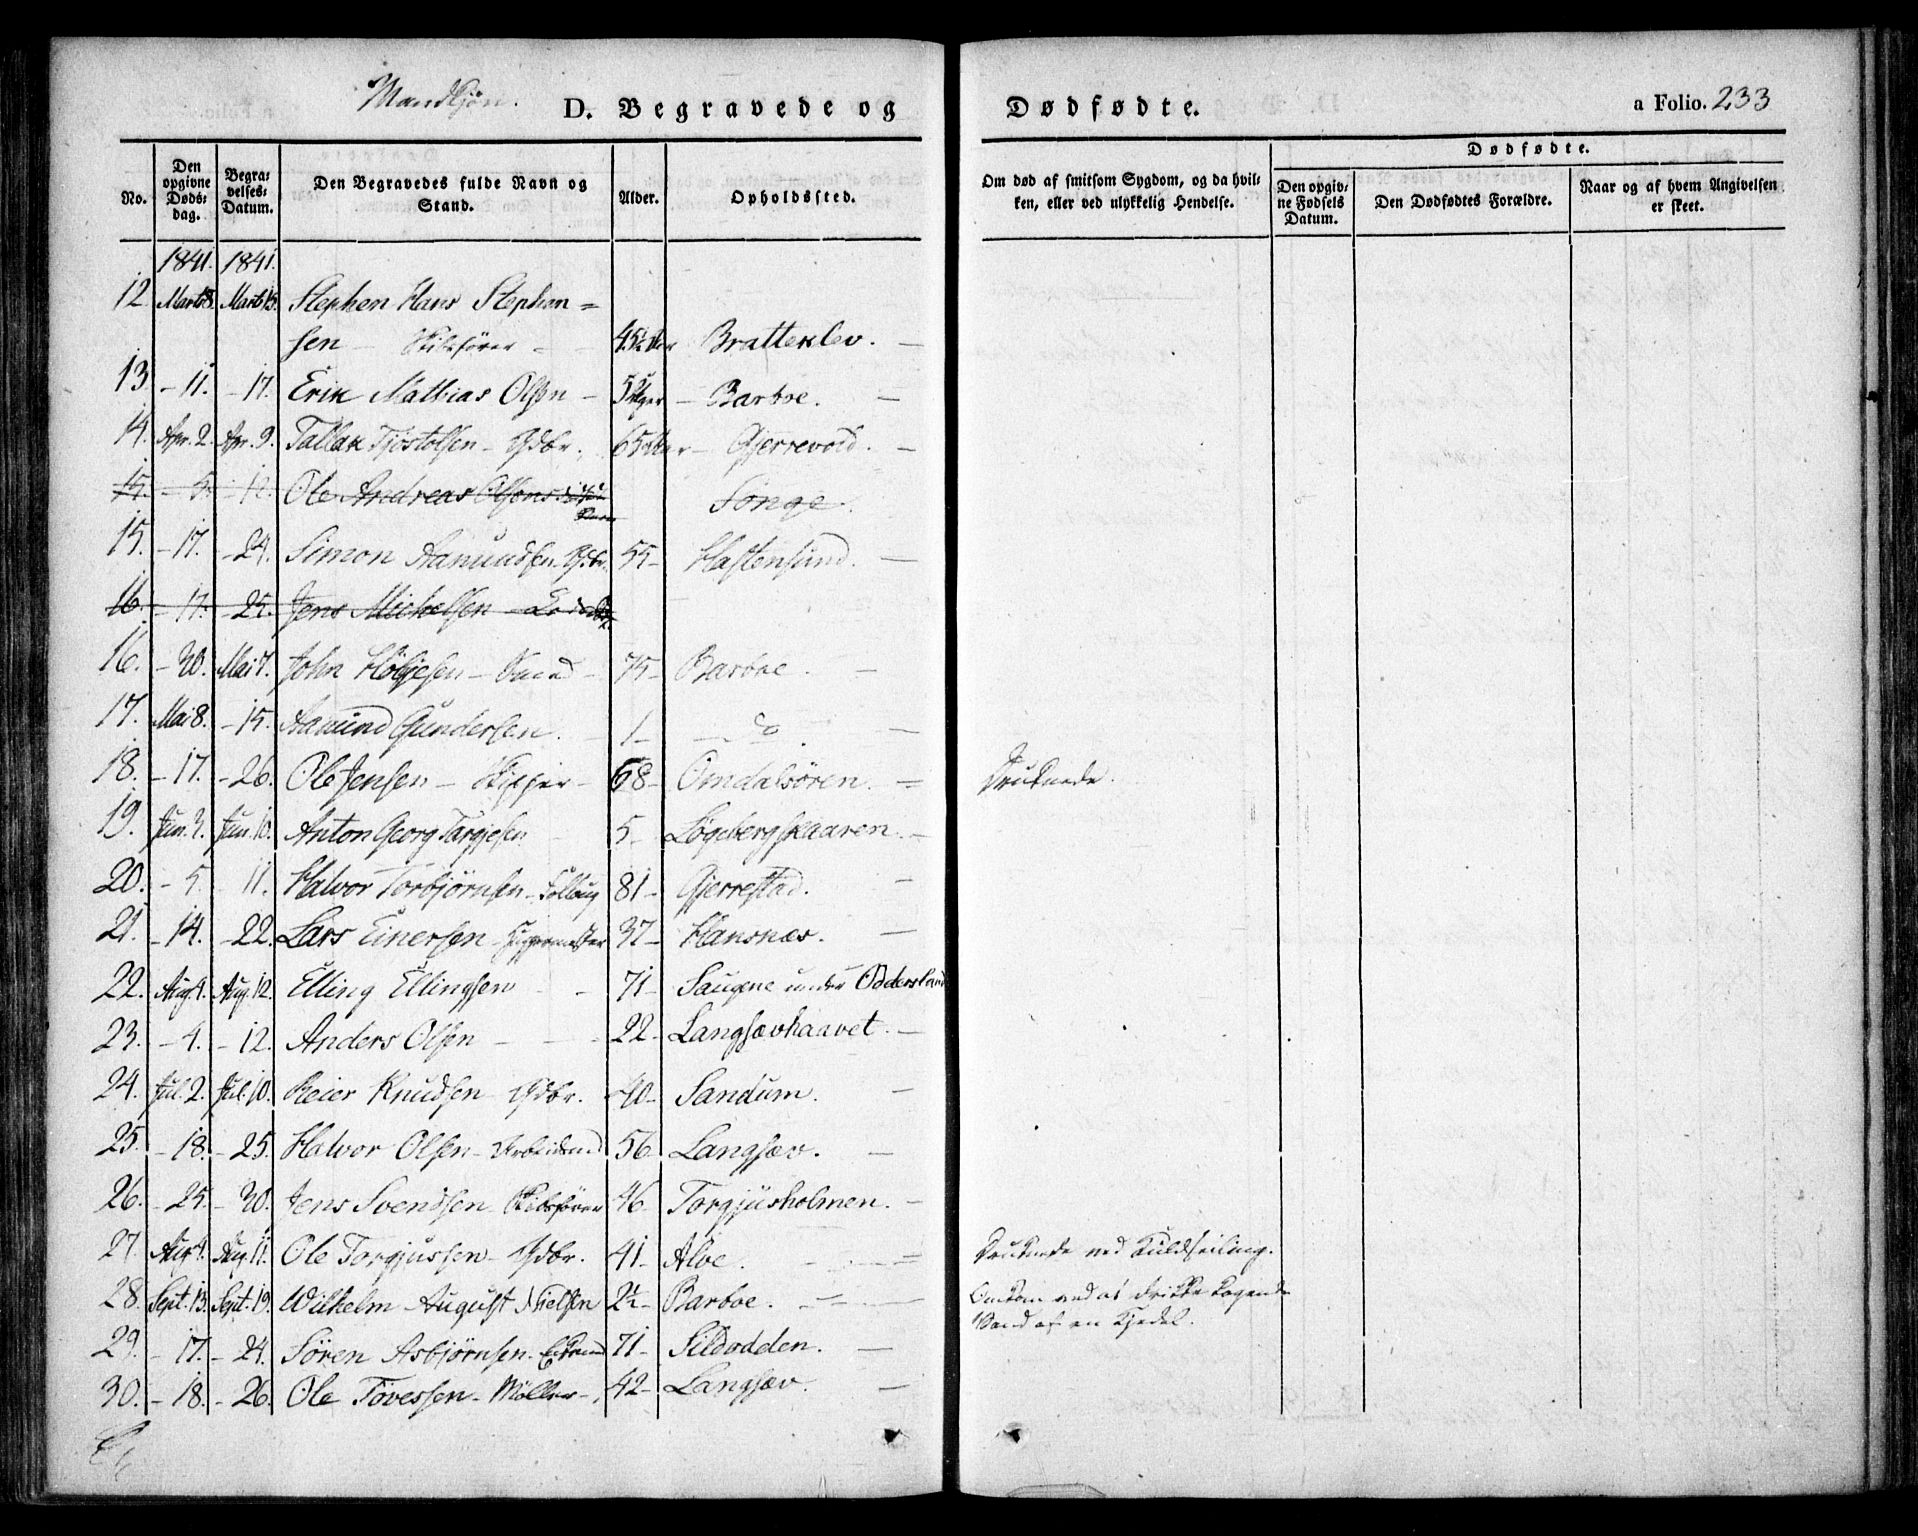 Mandkjøn.
D. Begravede og
No.
Den opgivne Døds-dag.
Begra-velses-Datum.
Den Begravedes fulde Navn og Stand.
Alder.
Opholdssted.
1841. 1841.
12 Marts 8. Marts 15. Stephen Hans Stephen=
sen Skibsfører 45½ Aar Bratteklev.
13 - 11. - 17. Erik Mathias Olsen - 5 Uger - Barboe.
14. Apr. 2. Apr. 9. Tallak Tjøstolsen - Gdbr. 65 Aar - Gjerrevold.
15. - 5. - 12. Ole Andreas Olsens Songe.
15. - 17. - 24. Simon Aamundsen Gdbr. 55 - Hastensund.
16. - 17. - 25. Jens Michelsen
16. - 30. Mai 7. John Höljesen - 75 - Barboe.
17. Mai 8. - 15. Aamund Gundersen. 1 - do
18. - 17. - 26. Ole Jensen - Skipper - 68 - Omdalsören.
19. Jun. 3. Jun. 10. Anton Georg Targjesen 5 - Løgebergskaaren.
20. - 5. 11. Halvor Torbjørnsen - 81 - Gjerrestad.
21. - 14. - 22. Lars Einersen - 37 - Hansnæs.
22. Aug. 4. Aug. 12. Elling Ellingsen - 71 - Saugene under Oddersland
23. - 4. - 12. Anders Olsen - 22 - Langsævhaavet.
24. Jul. 2. Jul. 10. Reier Knudsen Gdbr. 40 - Sandum.
25. - 18. - 25. Halvor Olsen - Arbeidsmd 56 Langsæv.
26. - 25. - 30. Jens Svendsen Skibsfører 46 - Torgjusholmen.
27. Aug. 4. Aug. 11. Ole Torgjussen - Gdbr. 41 - Alve.
28. Sept. 13. Sept. 19. Wilhelm August Nielsen 2½ - Barboe.
29. - 17. - 24. Sören Asbjørnsen. 71 - Sildodden.
30. - 18. - 26. Ole Tövessen - Møller - 42 - Langsæv.
Dødfødte.
a Folio. 233
Om død af smitsom Sygdom, og da hvil-ken, eller ved ulykkelig Hendelse.
Dødfødte.
Den opgiv-ne Fødsels Datum.
Den Dødfødtes Forældre.
Naar og af hvem Angivelsen er skeet.
Druknede.
Druknede ved Kuldseiling.
Omkom ved at drikke kogende
Vand af en Kjedel.